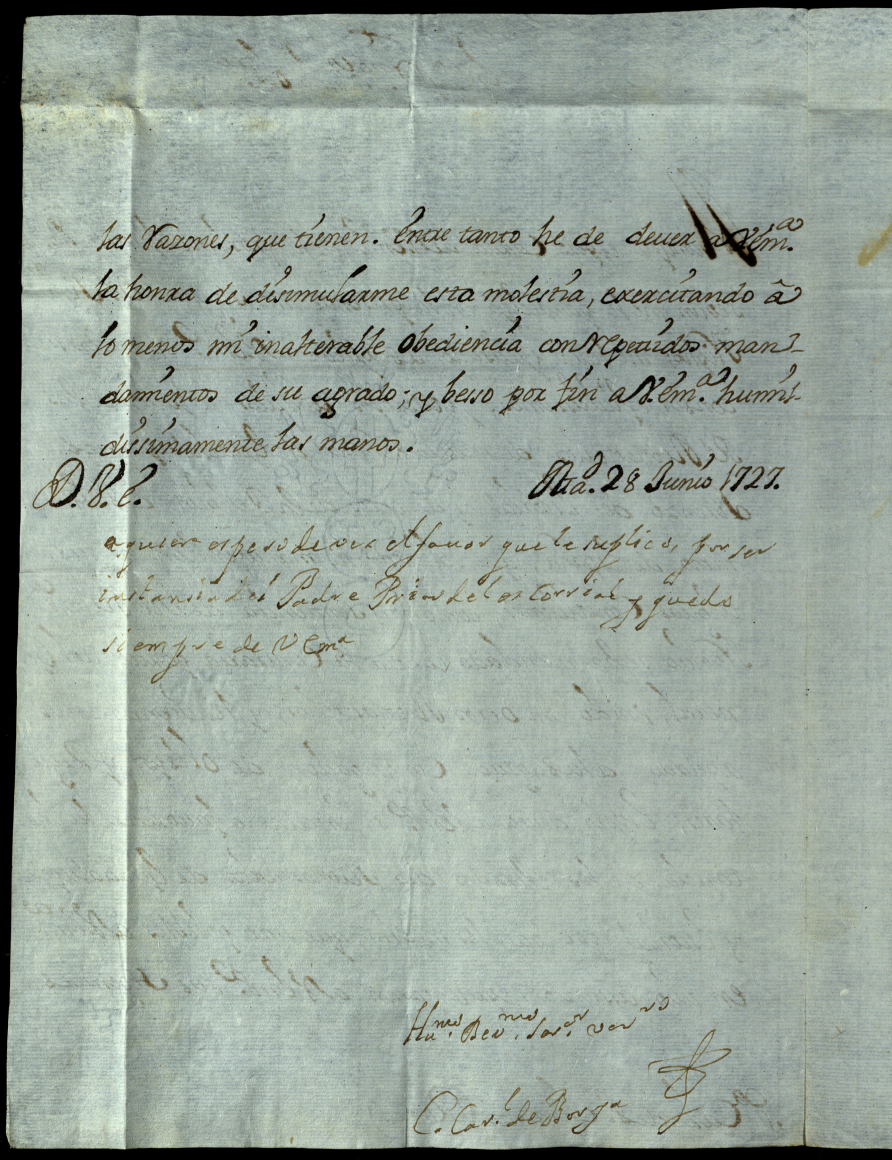 las razones, que tienen. Entre tanto he de dever a V. Em.ᵃ
la honra de disimularme esta molestia, exercitando â
lo menos mi inalterable obediencia con repetidos man-
damientos de su agrado; y besso por fin a V. Em.ᵃ humil-
dissimamente las manos.
D. V. E. Md.ᵈ 28 Junio 1727.
espero dever el favor que le suplico, por ser
instansia del Padre Prior del escorrial y quedo
siempre de V Emᵃ
Hu.ᵐᵒ Dev.ᵐᵒ Ser.ᵒʳ ver.ʳᵒ
C. Car.ˡ de Borja